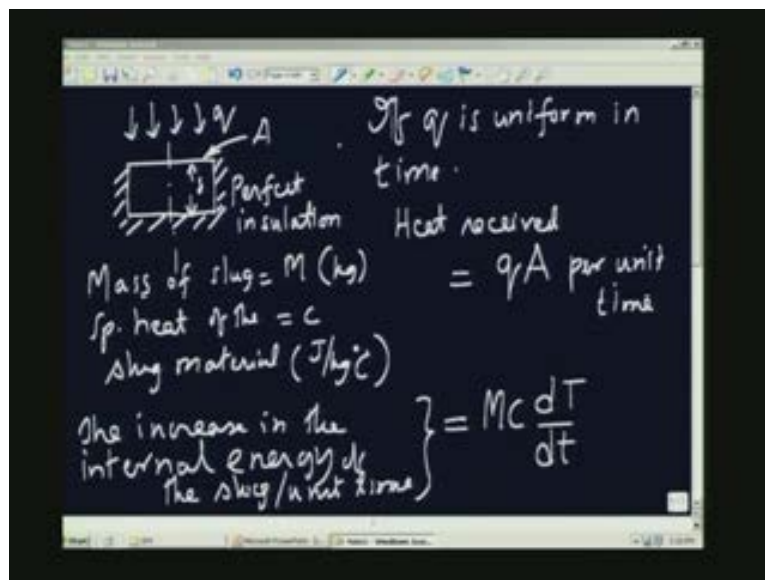 q
A
Perfect
insulation
Mass of slug = M (kg)
Sp. heat of the = c
slug material (J/kg°C)
The increase in the
internal energy of
the slug/unit time } = Mc dT/dt
If q is uniform in
time.
Heat received
= qA per unit
time